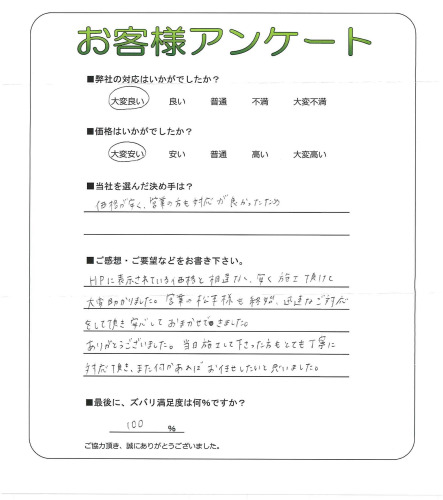 お客様アンケート
■弊社の対応はいかがでしたか?
大変良い 良い 普通 不満 大変不満
■価格はいかがでしたか?
大変安い 安い 普通 高い 大変高い
■当社を選んだ決め手は?
価格が安く、営業の方も対応が良かったため
■ご感想・ご要望などをお書き下さい。
HPに表示されている価格と相違なく、安く施工頂けて
大変助かりました。営業の松本様も終始、迅速なご対応
をして頂き安心しておまかせできました。
ありがとうございました。当日施工して下さった方もとても丁寧に
対応頂き、また何かあればお任せしたいと思いました。
■最後に、ズバリ満足度は何%ですか?
100 %
ご協力頂き、誠にありがとうございました。